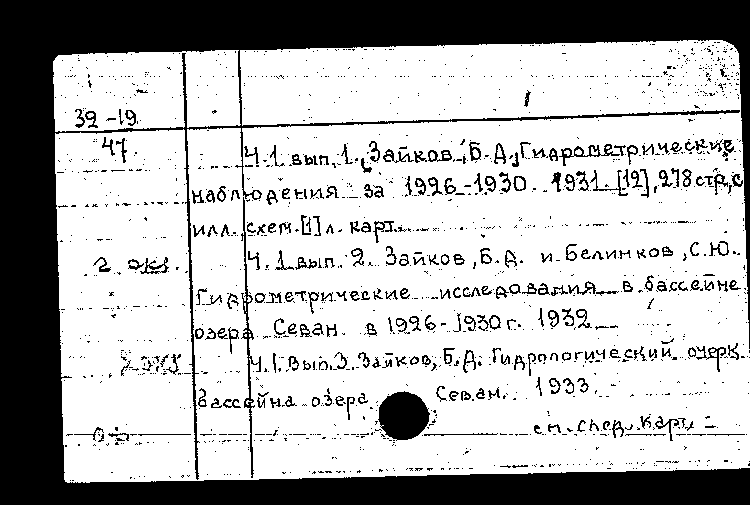 39-19
47.
Ч.1 вып.1. Зайков, Б.Д. Гидрометрические
наблюдения за 1926-1930. 1931. [12], 278 стр, с
илл., схем. [1] л. карт.
2 экз.
Ч.1 вып. 2. Зайков, Б.Д. и Белинков, С.Ю.
Гидрометрические исследования в бассейне
озера Севан в 1926-1930 г. 1932
2 экз
Ч.1. Вып.3. Зайков, Б.Д. Гидрологический очерк
бассейна озера Севан. 1933.
см. след. карт.